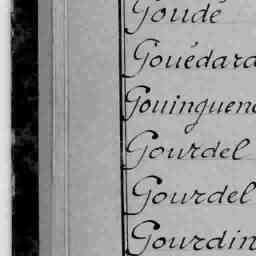 Goude
Gouédard
Gouinguene
Gourdel
Gourdel
Gourdin